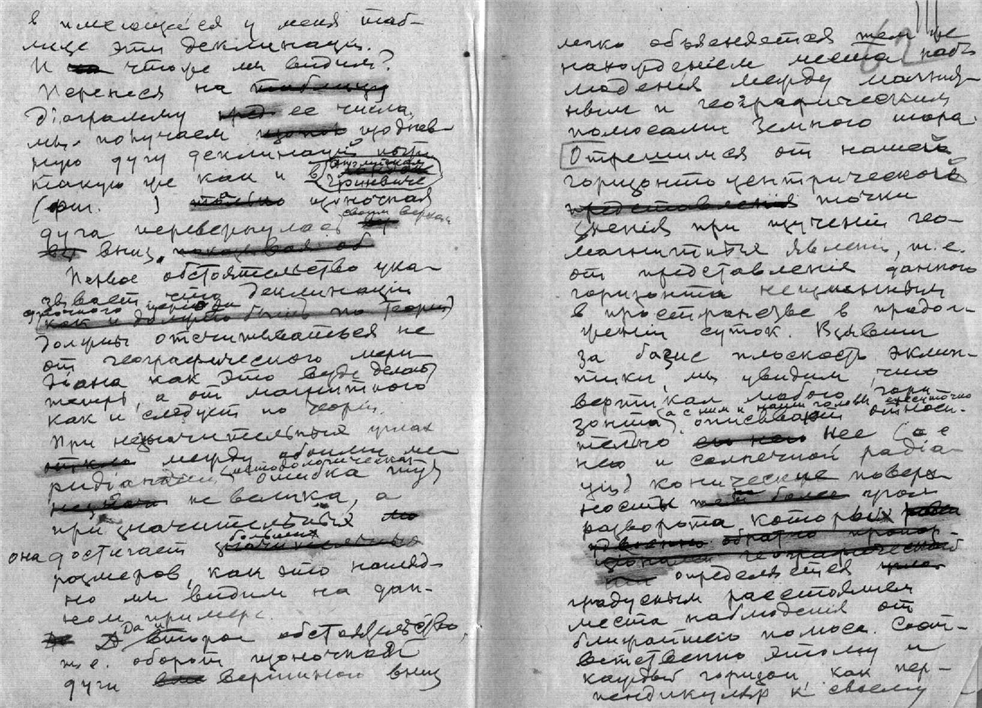 в имеющейся у меня таб-
лице эти деклинацiи.
И что же мы видим?
Перенеся на
дiаграмму ее числа,
мы получаем
ную дугу деклинацiй почти
такую же как и в Гринвиче
(фиг. )
дуга перевернулась своим верхом
вниз,
Первое обстоятельство ука-
зывает что деклинацiи
как и должно быть по теорiи
должны отсчитываться не
от географического мери-
дiана как это везде делают
теперь, а от магнитного
как и следует по теорiи.
При незначительных углах
между обоими ме-
ридiанами методологическая ошибка эта
не велика, а
при значительных
она достигает больших
размеров, как это нагляд-
но мы видим на дан-
ном примере.
Да и второе обстоятельство,
т.е. оборот
дуги вершиною вниз
62
легко объясняется тем же
нахожденiем места наб-
люденiя между магнит-
ным и географическим
полюсами Земного шара.
Отрешимся от нашей
горизонтоцентрической
представленiя точки
зренiя при изученiи гео-
магнитных явленiй, т.е.
от представленiя данного
горизонта неизменным
в пространстве в продол-
женiи суток. Взявши
за базис плоскость эклип-
тики, мы увидим что
вертикал любого гори-
зонта (а с ним и наши головы описывают относи-
тельно нее (а с
нею и солнечной радiа-
цiи) конические поверх-
ности угол
разворота которых
географической
определяется
градусным расстоянием
места наблюденiя от
ближайшего полюса. Соот-
ветственно этому и
каждый горизонт, как пер-
пендикуляр к своему